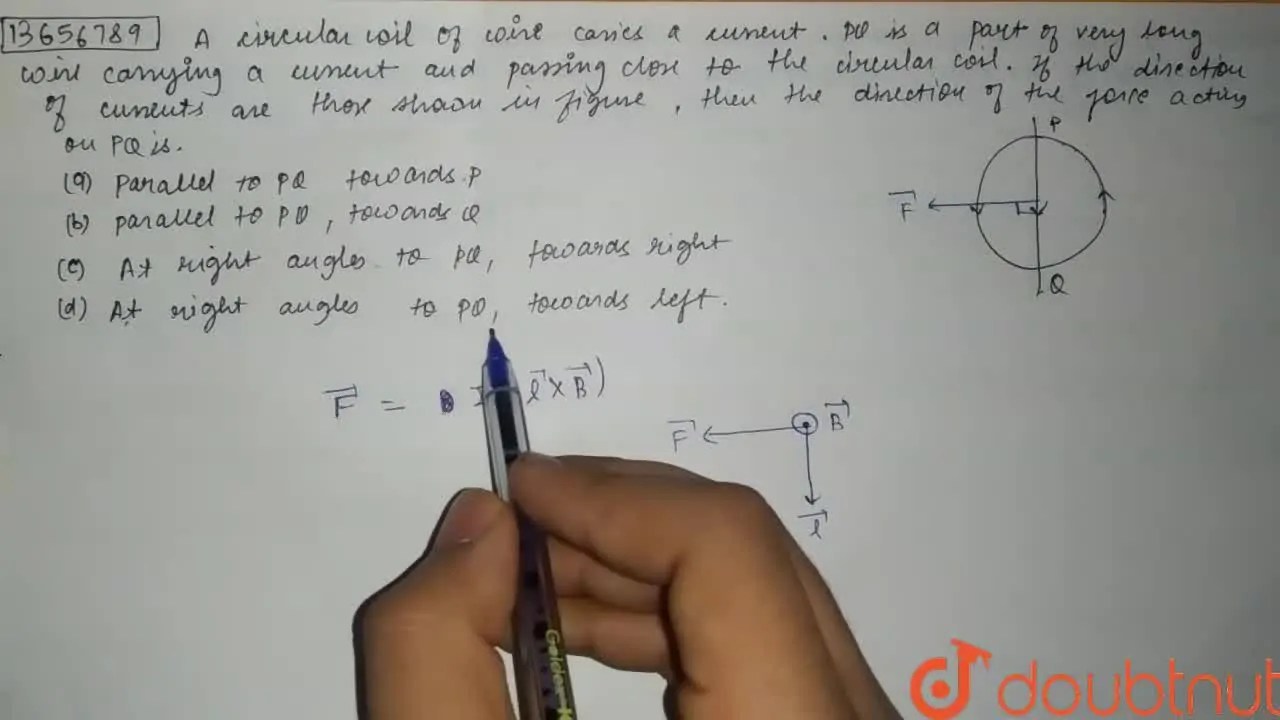 13656789 A circular coil of wire carries a current. PQ is a part of very long
wire carrying a current and passing close to the circular coil. If the direction
of currents are those shown in figure, then the direction of the force acting
on PQ is.
(a) parallel to PQ towards P
(b) parallel to PQ, towards Q
(c) At right angles to PQ, towards right
(d) At right angles to PQ, towards left.
P
F
Q
F = l × B)
F B
l
doubtnut